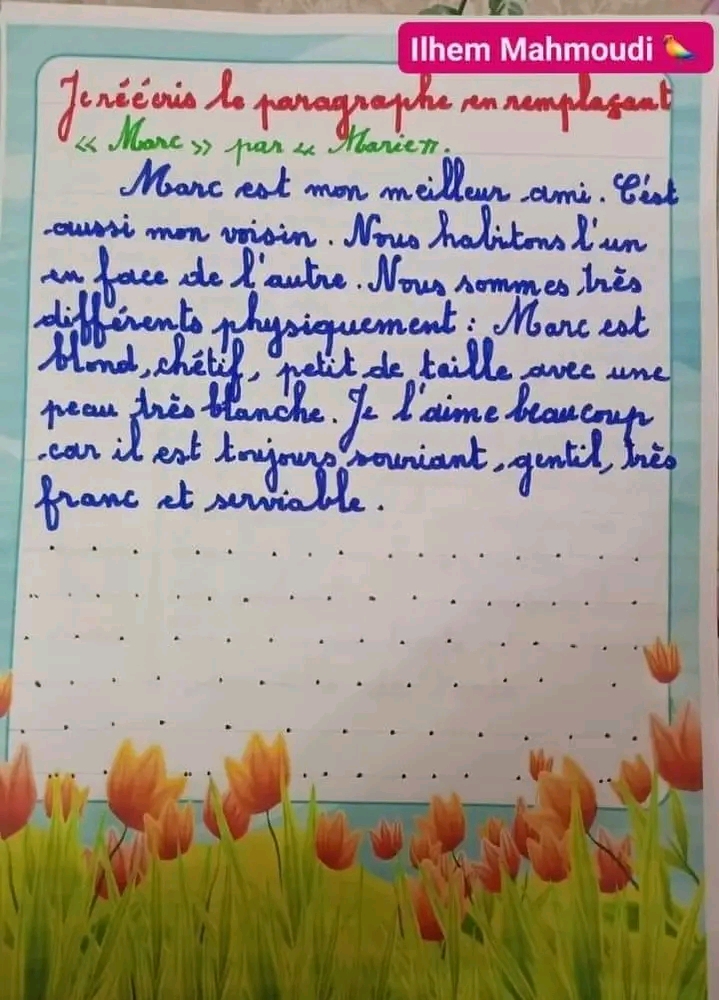 Ilhem Mahmoudi
Je réécris le paragraphe en remplaçant
« Marc » par « Marie ».
Marc est mon meilleur ami. C'est
aussi mon voisin. Nous habitons l'un
en face de l'autre. Nous sommes très
différents physiquement : Marc est
blond, chétif, petit de taille avec une
peau très blanche. Je l'aime beaucoup
car il est toujours souriant, gentil, très
franc et serviable.